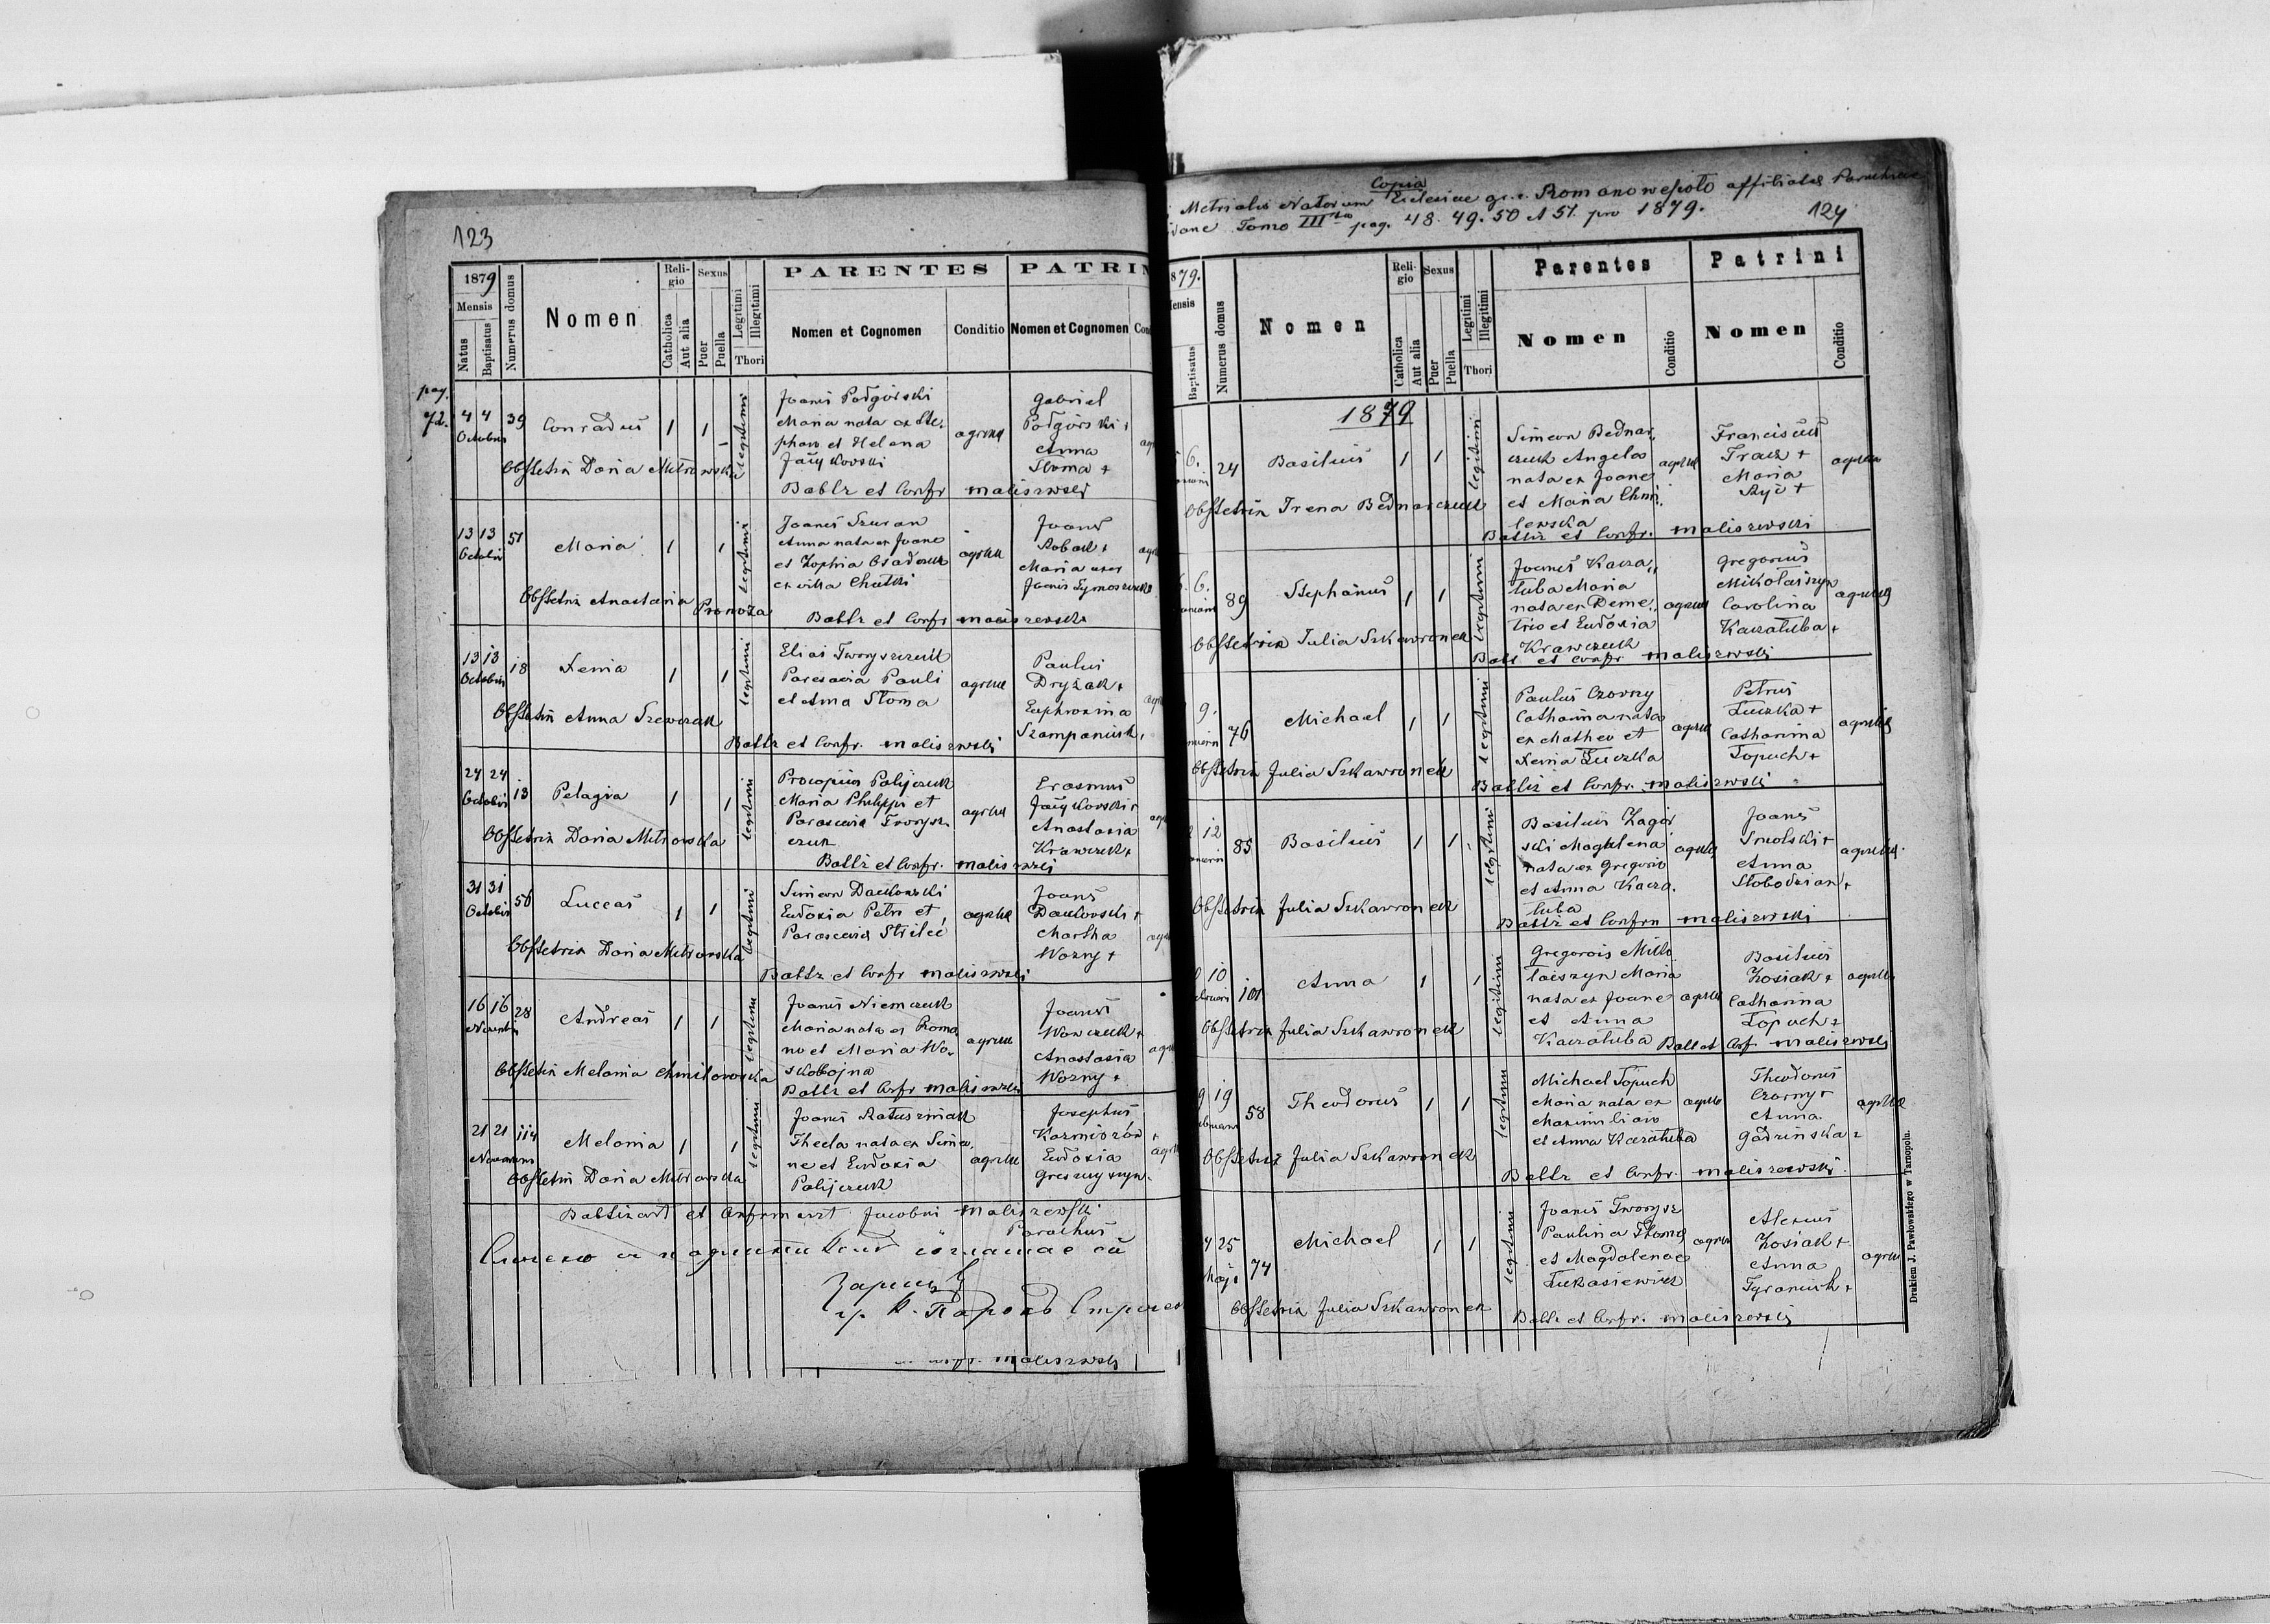 123
1879
Mensis
Natus
Baptisatus
Numerus domus
Nomen
Religio
Catholica
Aut alia
Sexus
Puer
Puella
Legitimi
Illegitimi
Thori
PARENTES
Nomen et Cognomen
Conditio
PATRIN
Nomen et Cognomen
pag.
72.
4 4 39
Octobris
Conradus 1 1
legitimi
Joanes Podgórski
Maria nata ex Ste-
phano et Helena
agricolae
Gabriel
Podgórski +
Anna
Słoma +
Obstetrix Daria Mitrowska
Babtz et Confr maliszewski
13 13 51
Octobris
Maria 1 1
legitimi
Joanes Szuran
Anna nata ex Joane
et Zophia
ex villa Chutki
Joanes
Robak +
Maria uxor
Joanis Tymoszczuk
Obstetrix Anastasia Pronoza
Babtz et Confr maliszewski
13 13 18
Octobris
Xenia 1 1
legitimi
Elias Tworyszczuk
Parascevia Pauli
et Anna Słoma
Paulus
Dryżak +
Euphrosina
Szampaniuk +
Obstetrix Anna Szewczuk
Babtz et Confr. maliszewski
24 24 13
Octobris
Pelagia 1 1
legitimi
Procopius Palijczuk
Maria Philippi et
Parascevia Tworysz-
czuk
Erasmus
Anastasia
Krawczuk +
Obstetrix Daria Mitrowska
Babtz et Confr. maliszewski
31 31 56
Octobris
Luccas 1 1
legitimi
Simeon Daukowski
Eudoxia Petri et
Parascevia Strilec
Joanes
Daukowski +
Martha
Wozny +
Obstetrix Daria Mitrowska
Babtz et Confr maliszewski
16 16 28
Novembris
Andreas 1 1
legitimi
Joanes Niemczuk
Maria nata ex Roma-
no et Maria Wo-
skobojna
Joanes
Wowczuk +
Anastasia
Wozny +
Obstetrix Melania Chmilowska
Babtz et Confr maliszewski
21 21 114
Novembris
Melania 1 1
legitimi
Joanes Ratuszniak
Thecla nata ex Simo-
ne et Eudoxia
Palijczuk
Josephus
Kazmirów +
Eudoxia
Obstetrix Daria Mitrowska
Babtizavit et Confirmavit Jacobus Maliszewski
Parochus
Парохъ
maliszewski
Copia
Metricalis Natorum Ecclesiae gr. c. Romanowesioło affiliatae Parochiae
Tomo III pag. 48. 49. 50 et 51. pro 1879.
124
879.
Mensis
Baptisatus
Numerus domus
Nomen
Religio
Catholica
Aut alia
Sexus
Puer
Puella
Legitimi
Illegitimi
Thori
Parentes
Nomen
Conditio
Patrini
Nomen
Conditio
1879
6. 24
Basilius 1 1
legitimi
Simeon Bednar-
czuk Angela
nata ex Joane
et Maria Chmi-
lewska
Franciscus
Tracz +
Maria
Ryć +
Obstetrix Irena Bednarczuk
Babtz et Confr. maliszewski
6. 89
Stephanus 1 1
legitimi
Joanes Kacza-
łuba Maria
nata ex Deme-
trio et Eudoxia
Krawczuk
Gregorius
Mikołaiszyn
Carolina
Kaczałuba +
Obstetrix Julia Szkawronek
Babt et Confr maliszewski
9. 76
Michael 1 1
legitimi
Paulus Czorny
Catharina nata
ex Matheo et
Xenia Łuczka
Petrus
Łuczka +
Catharina
Łopuch +
Obstetrix Julia Szkawronek
Babtiz et Confr. maliszewski
12 85
Basilius 1 1
legitimi
Basilius Zagór-
ski Magdalena
nata ex Gregorio
et Anna Kacza-
łuba
Joanes
Smolski +
Anna
Słobodzian +
Obstetrix Julia Szkawronek
Babtz et Confrm maliszewski
10 101
Anna 1 1
legitimi
Gregorius Miko-
łaiszyn Maria
nata ex Joane
et Anna
Kaczałuba
Basilius
Kosiak +
Catharina
Łopuch +
Obstetrix Julia Szkawronek
Babt et Conf. maliszewski
19 58
Theodorus 1 1
legitimi
Michael Łopuch
Maria nata ex
Maximiliano
et Anna Kaczałuba
Theodorus
Czorny +
Anna
Gadzinska +
Obstetrix Julia Szkawronek
Babtz et Confr. maliszewski
25 74
Maji
Michael 1 1
legitimi
Joanes Tworysz
Paulina Słoma
et Magdalenae
Łukasiewicz
Alexius
Kosiak +
Anna
Obstetrix Julia Szkawronek
Babtz et Confr. maliszewski
Drukiem J. Pawłowskiego w Tarnopolu.